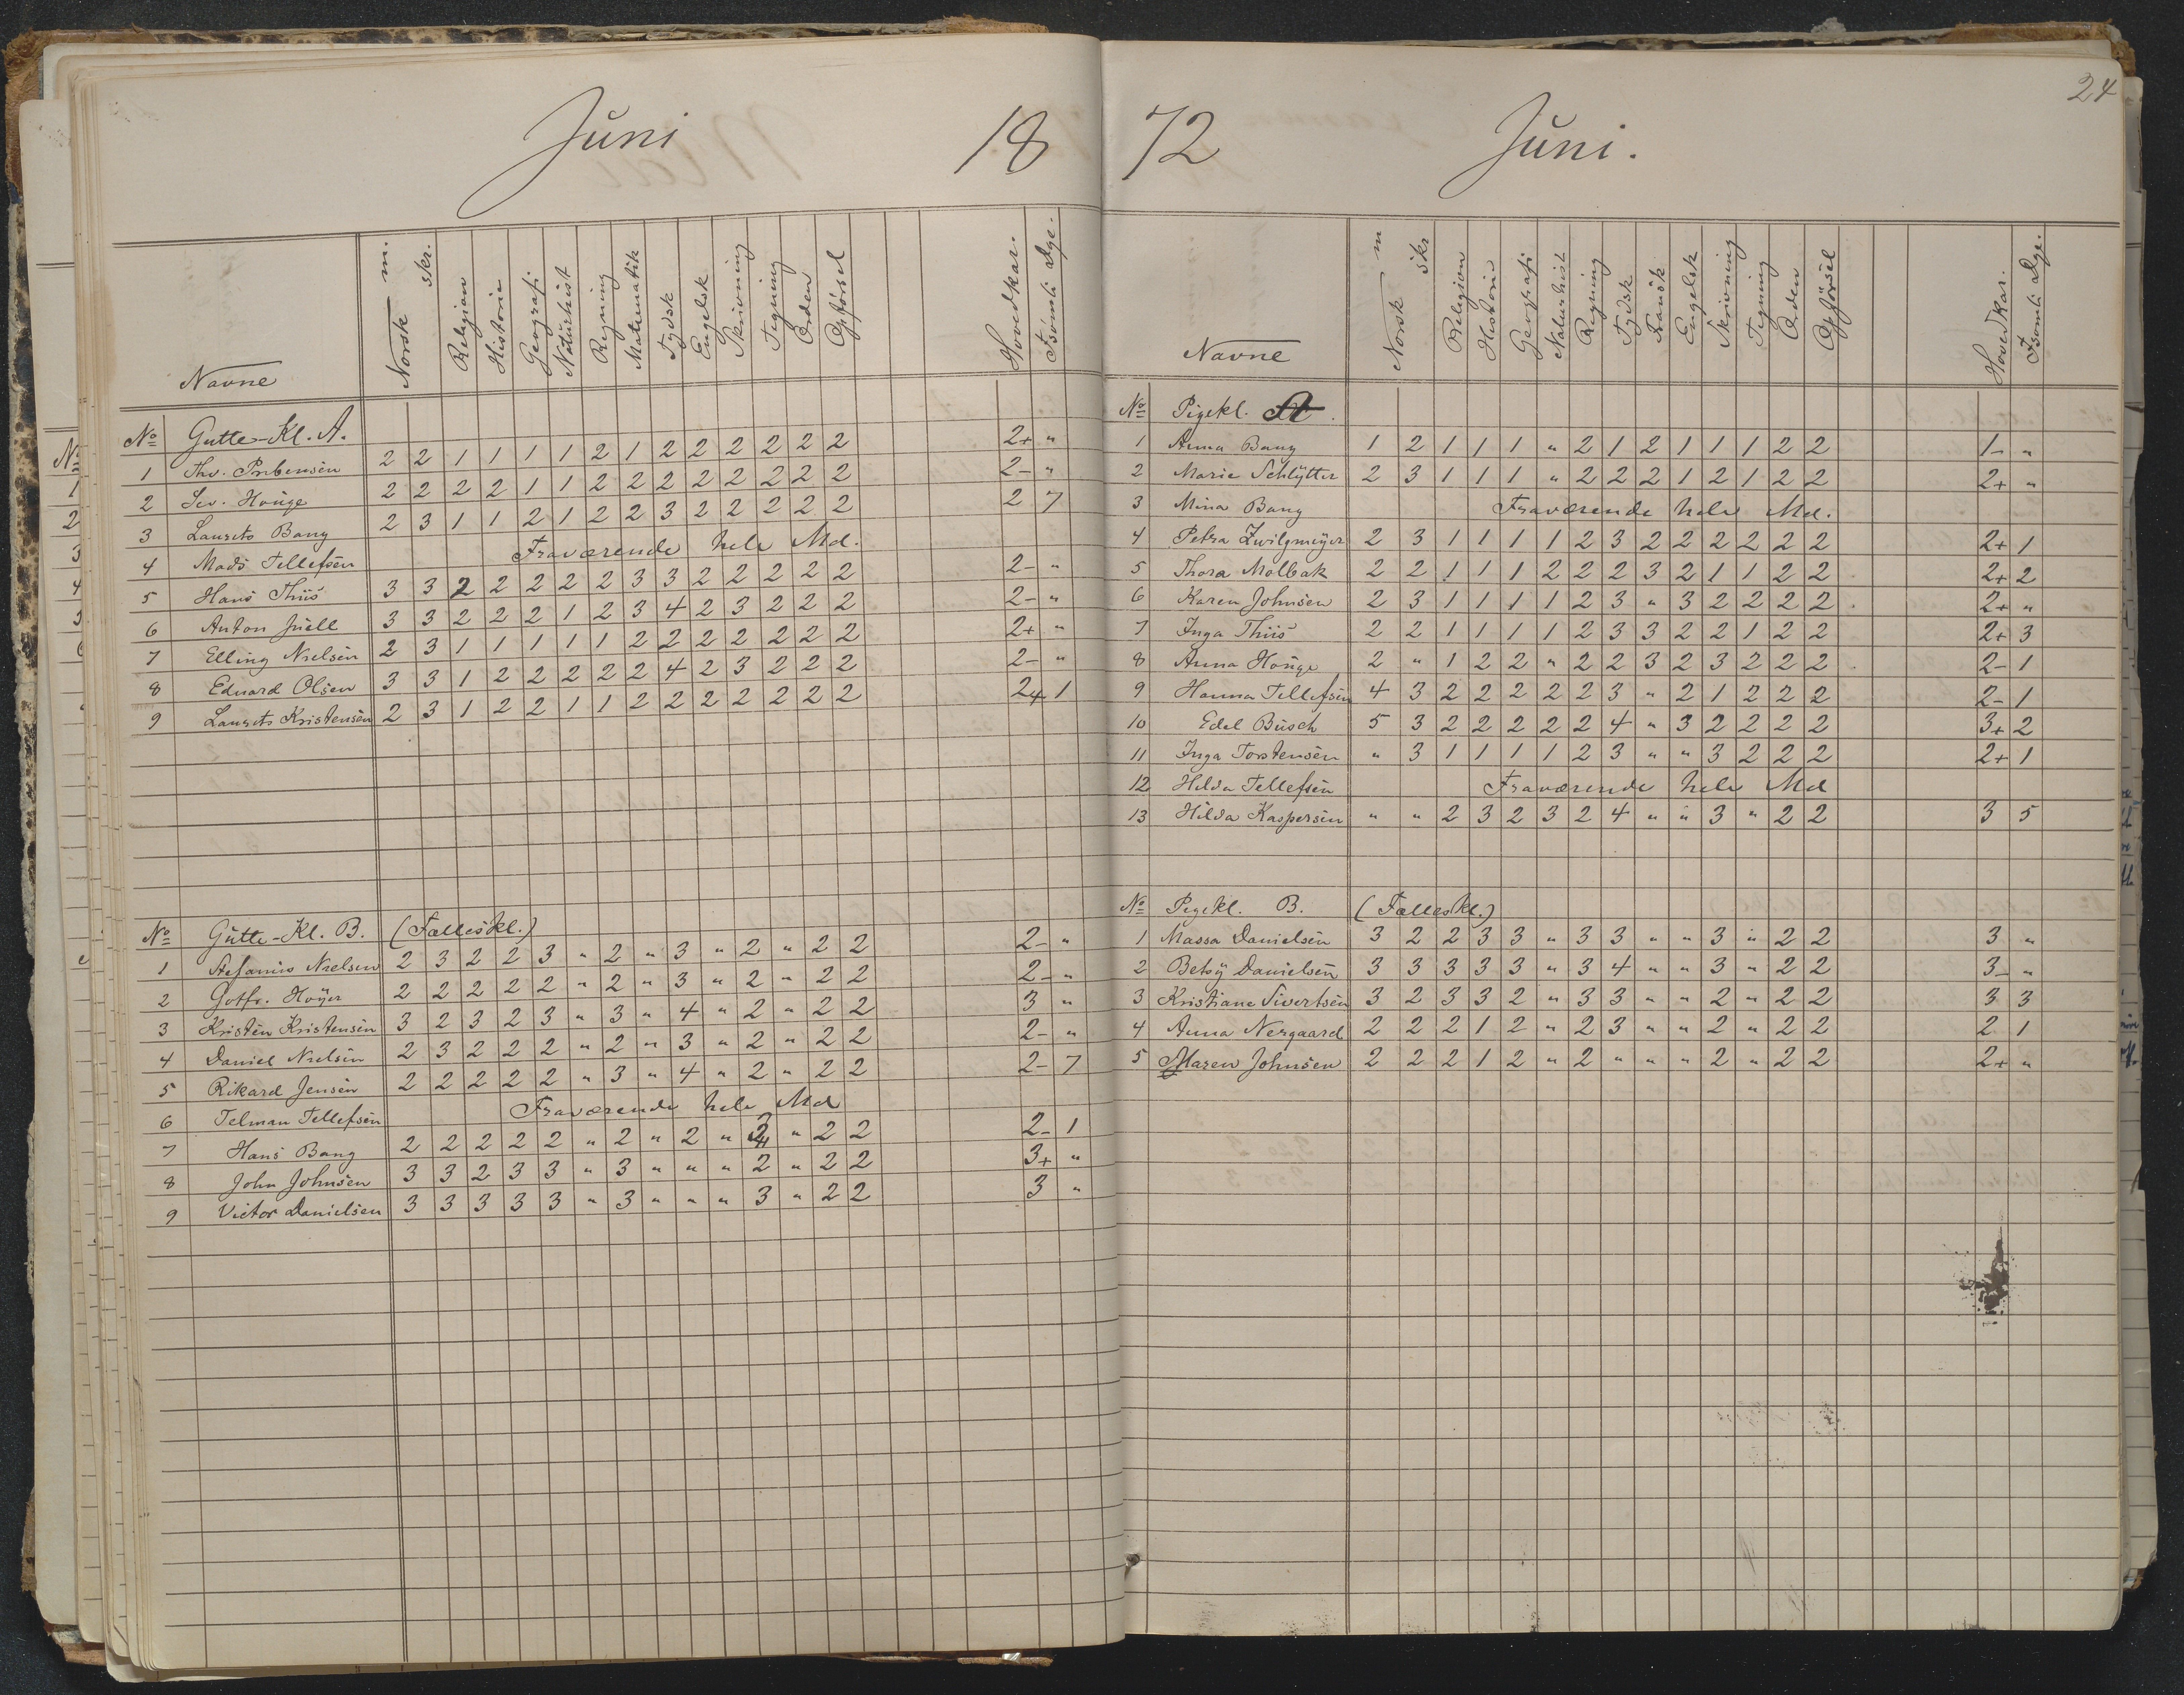 Juni 18
Navne Norsk m. skr. Religion Historie Geografi Naturhist Regning Mathematik Tydsk Engelsk Skrivning Tegning Orden Opførsel Hovedkar. Fsömti Dge.
No Gutte-Kl. A.
1 Thv. Prebensen 2 2 1 1 1 1 2 1 2 2 2 2 2 2 2+ "
2 Sev. Houge 2 2 2 2 1 1 2 2 2 2 2 2 2 2 2- "
3 Laurits Bang 2 3 1 1 2 1 2 2 3 2 2 2 2 2 2 7
4 Mads Tellefsen Fraværende hele Md.
5 Hans Thiis 3 3 2 2 2 2 2 3 3 2 2 2 2 2 2- "
6 Anton Juell 3 3 2 2 2 1 2 3 4 2 3 2 2 2 2- "
7 Elling Nielsen 2 3 1 1 1 1 1 2 2 2 2 2 2 2 2+ "
8 Eduard Olsen 3 3 1 2 2 2 2 2 4 2 3 2 2 2 2- "
9 Laurits Kristensen 2 3 1 2 2 1 1 2 2 2 2 2 2 2 2+ 1
No Gutte-Kl. B. (Fælleskl.)
1 Stefanius Nielsen 2 3 2 2 3 " 2 " 3 " 2 " 2 2 2- "
2 Gotfr. Høyer 2 2 2 2 2 " 2 " 3 " 2 " 2 2 2- "
3 Kristen Kristensen 3 2 3 2 3 " 3 " 4 " 2 " 2 2 3 "
4 Daniel Nielsen 2 3 2 2 2 " 2 " 3 " 2 " 2 2 2- "
5 Rikard Jensen 2 2 2 2 2 " 3 " 4 " 2 " 2 2 2- 7
6 Telman Tellefsen Fraværende hele Md
7 Hans Bang 2 2 2 2 2 " 2 " 2 " 2 " 2 2 2- 1
8 John Johnsen 3 3 2 3 3 " 3 " " " 2 " 2 2 3+ "
9 Victor Danielsen 3 3 3 3 3 " 3 " " " 3 " 2 2 3 "
24
72 Juni.
Navne Norsk m skr Religion Historie Geografi Naturhist Regning Tydsk Fransk Engelsk Skrivning Tegning Orden Opførsel Hovedkar. Fsömti Dge.
No Pigekl. A.
1 Anna Bang 1 2 1 1 1 " 2 1 2 1 1 1 2 2 1- "
2 Marie Schlytter 2 3 1 1 1 " 2 2 2 1 2 1 2 2 2+ "
3 Mina Bang Fraværende hele Md.
4 Petra Zwilgmeyer 2 3 1 1 1 1 2 3 2 2 2 2 2 2 2+ 1
5 Thora Molbak 2 2 1 1 1 2 2 2 3 2 1 1 2 2 2+ 2
6 Karen Johnsen 2 3 1 1 1 1 2 3 " 3 2 2 2 2 2+ "
7 Inga Thiis 2 2 1 1 1 1 2 3 3 2 2 1 2 2 2+ 3
8 Anna Houge 2 " 1 2 2 " 2 2 3 2 3 2 2 2 2- 1
9 Hanna Tellefsen 4 3 2 2 2 2 2 3 " 2 1 2 2 2 2- 1
10 Edel Busch 5 3 2 2 2 2 2 4 " 3 2 2 2 2 3+ 2
11 Inga Torstensen " 3 1 1 1 1 2 3 " " 3 2 2 2 2+ 1
12 Hilda Tellefsen Fraværende hele Md
13 Hilda Kaspersen " " 2 3 2 3 2 4 " " 3 " 2 2 3 5
No Pigekl. B. (Fælleskl.)
1 Massa Danielsen 3 2 2 3 3 " 3 3 " " 3 " 2 2 3 "
2 Betsy Danielsen 3 3 3 3 3 " 3 4 " " 3 " 2 2 3- "
3 Kristiane Sivertsen 3 2 3 3 2 " 3 3 " " 2 " 2 2 3 3
4 Anna Nergaard 2 2 2 1 2 " 2 3 " " 2 " 2 2 2 1
5 Maren Johnsen 2 2 2 1 2 " 2 " " " 2 " 2 2 2+ "